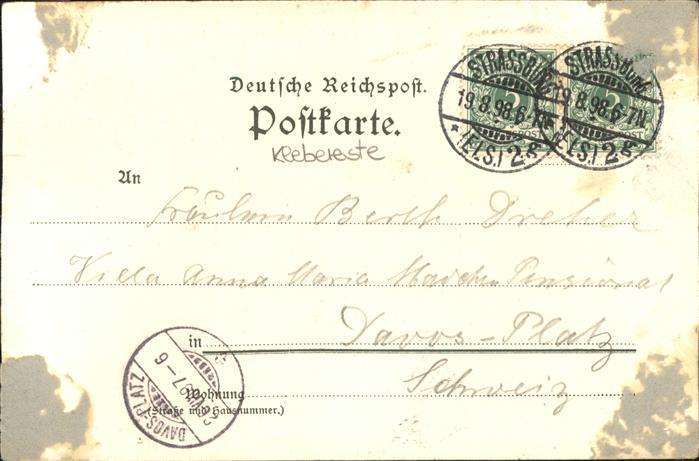 STRASSBURG
19.8.98.6-7N
* (ELS.) 2 g
STRASSBURG
19.8.98.6-7N
(ELS.) 2 g
Deutsche Reichspost.
Postkarte.
Klebereste
An
Fräulein Berth Dreher
Villa Anna Maria Mädchen Pensionat
in Davos-Platz
Schweiz
Wohnung
(Straße und Hausnummer.)
DAVOS-PLATZ